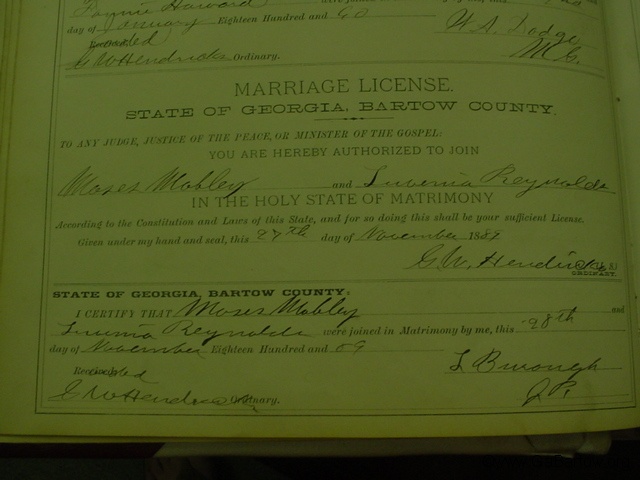 Fannie Harward were joined in Matrimony by me, this
day of January Eighteen Hundred and 90
Recorded W. A. Dodge
G W Hendricks Ordinary. M.G.
MARRIAGE LICENSE.
STATE OF GEORGIA, BARTOW COUNTY,
TO ANY JUDGE, JUSTICE OF THE PEACE, OR MINISTER OF THE GOSPEL:
YOU ARE HEREBY AUTHORIZED TO JOIN
Moses Mobley and Luvenia Reynolds
IN THE HOLY STATE OF MATRIMONY
According to the Constitution and Laws of this State, and for so doing this shall be your sufficient License.
Given under my hand and seal, this 27th day of November 1889
G. W. Hendricks
ORDINARY.
STATE OF GEORGIA, BARTOW COUNTY:
I CERTIFY THAT Moses Mobley and
Luvenia Reynolds were joined in Matrimony by me, this 28th
day of November Eighteen Hundred and 89
Recorded
G W Hendricks Ordinary. J.P.